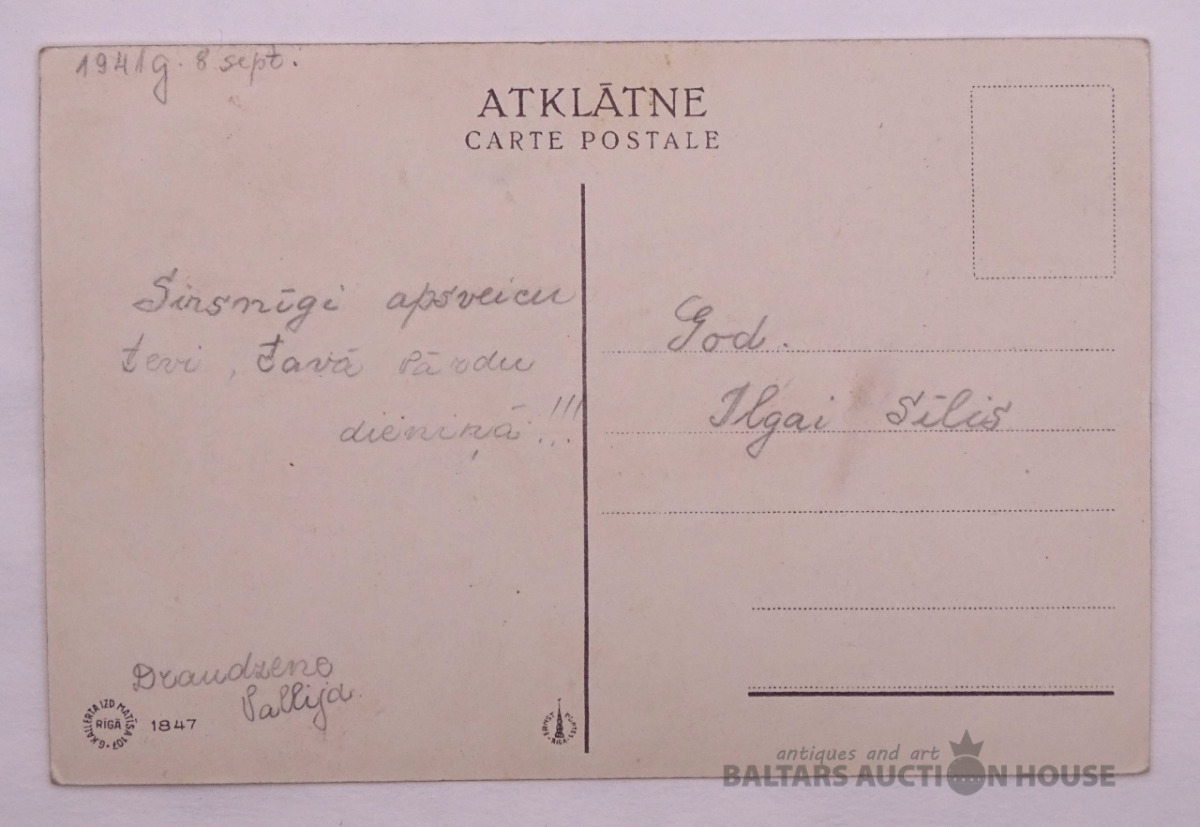 1941 g. 8 sept.
ATKLĀTNE
CARTE POSTALE
Sirsnīgi apsveicu
tevi, tavā vārdu
dieniņā!!!
God.
Ilgai Sīlis
Draudzene
G.KALLERTA IZD MATĪSA 107
RĪGĀ
1847
antiques and art
BALTARS AUCTION HOUSE